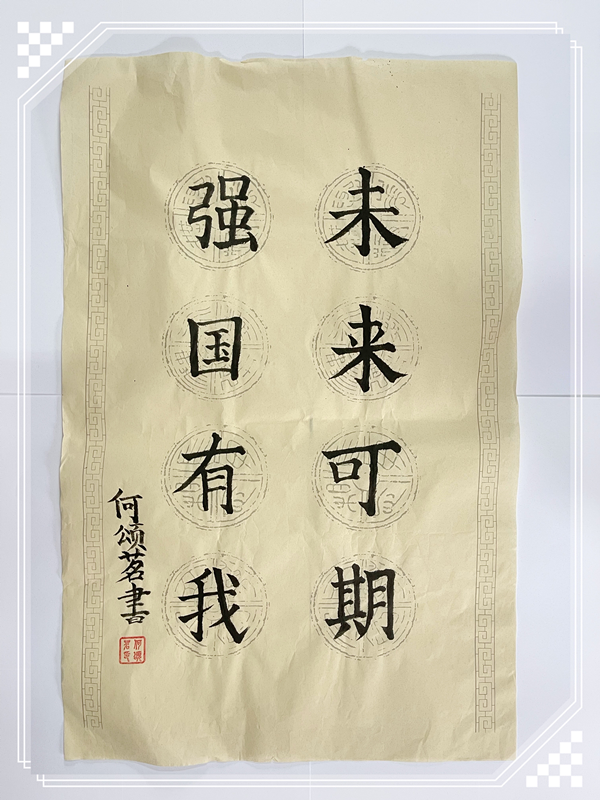 未来可期
强国有我
何颂茗書